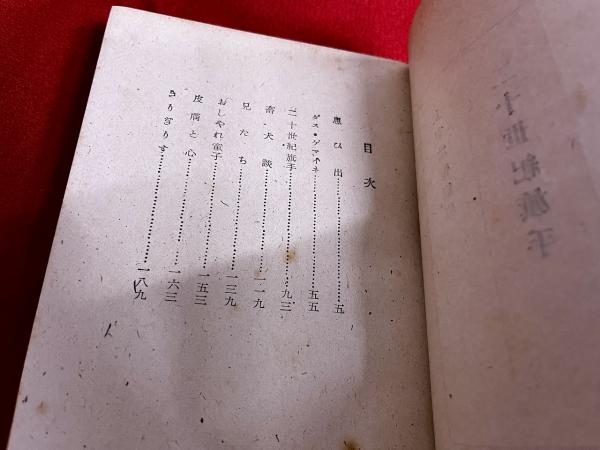 目次
思ひ出…………………五
ダス・ゲマイネ…………………五五
二十世紀旗手…………………九三
畜犬談…………………一一九
兄たち…………………一三九
おしやれ童子…………………一五三
皮膚と心…………………一六三
きりぎりす…………………一八九